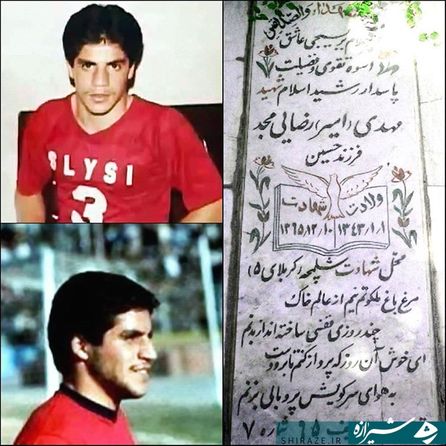 SLYSI
3
سلام بر بسیجی عاشق
اسوه تقوی و فضیلت
پاسدار رشید اسلام شهید
مهدی (امیر) رضایی مجد
فرزند حسین
ولادت شهادت
۱۳۴۳/۱/۱ ۱۳۶۵/۱۲/۱۰
محل شهادت شلمچه (کربلای ۵)
مرغ باغ ملکوتم نیم از عالم خاک
چند روزی قفسی ساخته اند از بدنم
ای خوش آن روز که پرواز کنم تا بر دوست
به هوای سر کویش پر و بالی بزنم
شیرازه
SHIRAZE.IR